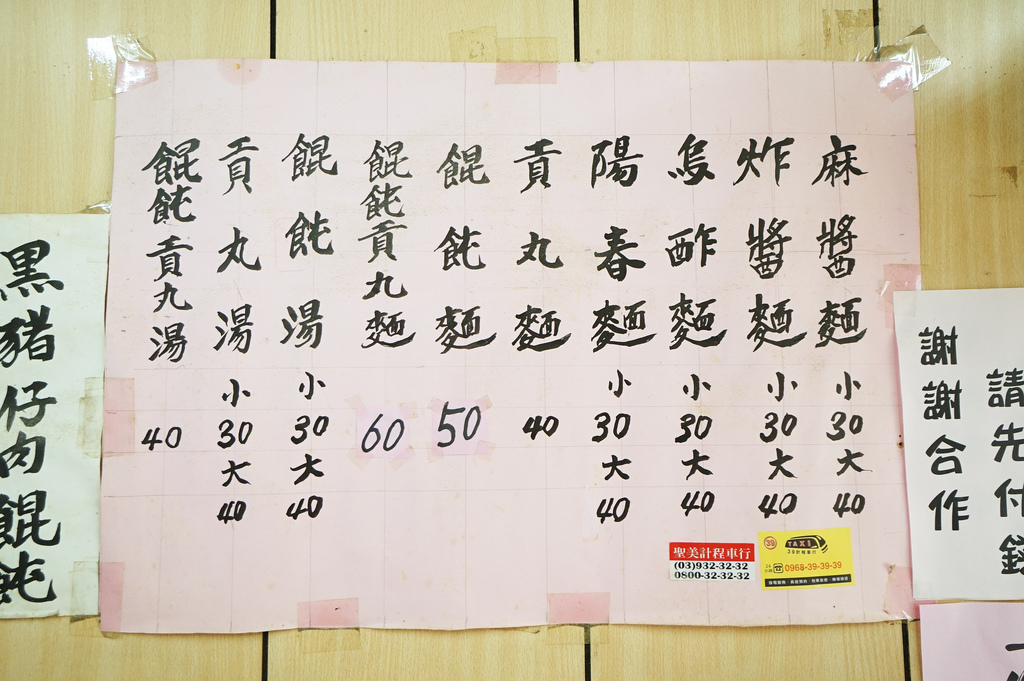 麻醬麵 小30 大40
炸醬麵 小30 大40
烏酢麵 小30 大40
陽春麵 小30 大40
貢丸麵 40
餛飩麵 50
餛飩貢丸麵 60
餛飩湯 小30 大40
貢丸湯 小30 大40
餛飩貢丸湯 40
黑豬仔肉餛飩
請先付錢
謝謝合作
聖美計程車行
(03)932-32-32
0800-32-32-32
39
TAXI
39計程車行
0968-39-39-39